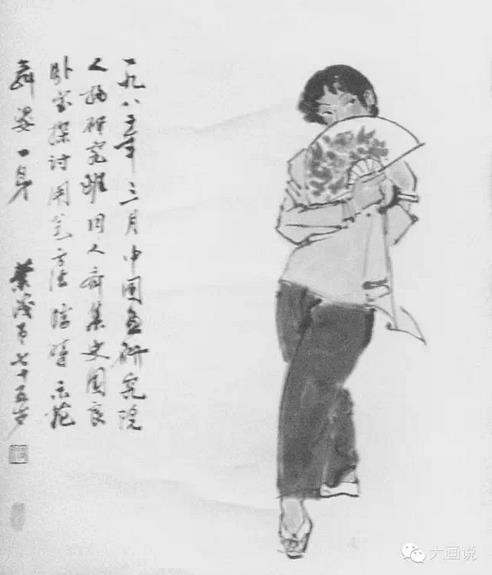 一九八三年三月中国画研究院
人物研究班同人齐集史国良
卧室探讨用笔方法示范
舞姿一身 葉浅予七十五岁
大画说